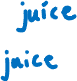 juice
juice